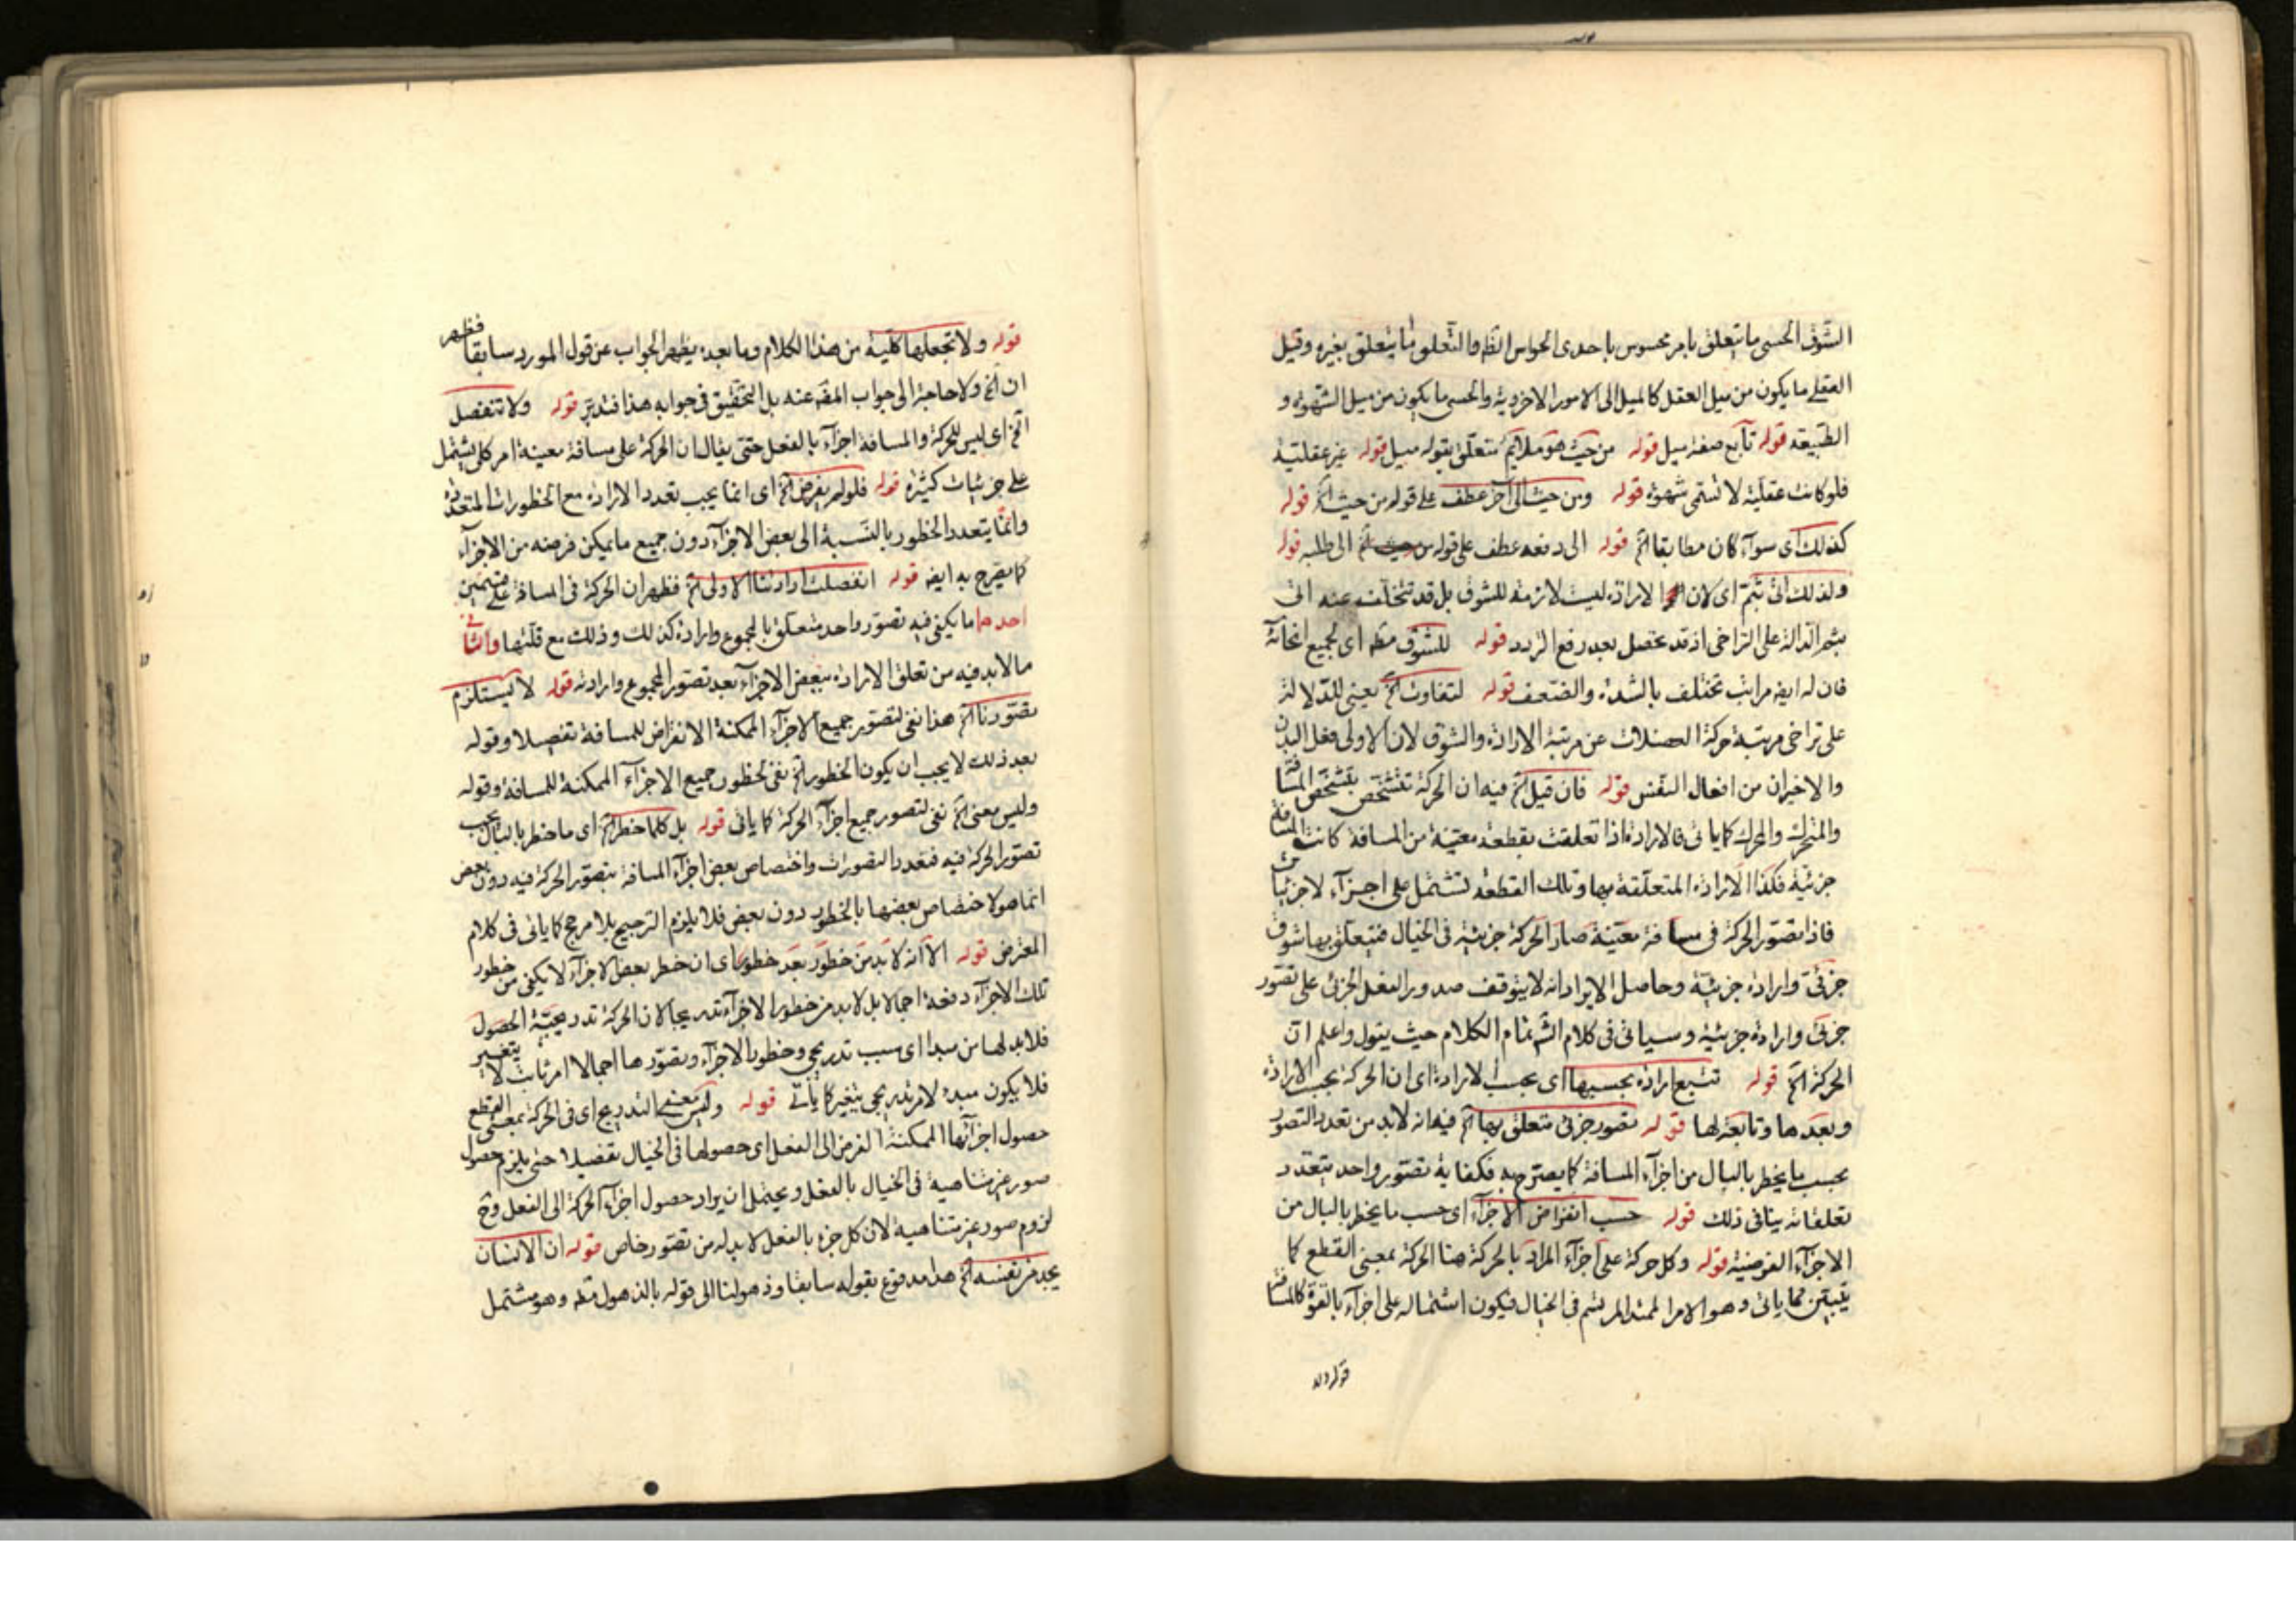 الشوق الحسى ما يتعلق بامر محسوس باحدى الحواس الظه والتعلق ما يتعلق بغيره وقيل
العقلى ما يكون من ميل العقل كالميل الى الامور الاخروية والحسى ما يكون من ميل الشهوة و
الطبيعه قوله تابع صفة ميل قوله من حيث هو ملايم متعلق بقوله ميل قوله غير عقلية
فلو كانت عقلية لا تسمى شهوة قوله ومن حيث الى آخر عطف على قوله من حيث الخ قوله
كذلك اى سوآء كان مطابقا الخ قوله الى دفعه عطف على قوله من حيث الخ الى طلبه قوله
ولذلك اتى بثم اى لان الارادة ليست لازمة للشوق بل قد تتخلف عنه اتى
بثم الدالة على التراخى اذ قد تحصل بعد رفع التردد قوله للشوق مطه اى لجميع انحائه
فان له ايضه مراتب تختلف بالشدة والضعف قوله لتفاوت الخ يعنى للدلالة
على تراخى مرتبة حركة العضلات عن مرتبة الارادة والشوق لان الاولى فعل البدن
والاخيران من افعال النفس قوله فان قيل الخ فيه ان الحركة تتشخص بتشخص المسافة
والمتحرك والمحرك كما ياتى فالارادة اذا تعلقت بقطعة معينة من المسافة كانت المسافة
جزئية فكذا الارادة المتعلقة بها وتلك القطعة تشتمل على اجزآء لا جزئيات
فاذا تصور الحركة فى مسافة معينة صار الحركة جزئية فى الخيال فيتعلق بها شوق
جزئى وارادة جزئية وحاصل الايراد انه لا يتوقف صدور الفعل الجزئى على تصور
جزئى وارادة جزئية وسياتى فى كلام الش تمام الكلام حيث يقول واعلم ان
الحركة الخ قوله تتبع ارادة بحسبها اى بحسب الارادة اى ان الحركة بحسب الارادة
وبعدها وتابعة لها قوله تصور جزئى متعلق بها الخ فيه انه لابد من تعدد التصور
بحسب ما يخطر بالبال من اجزآء المسافة كما يصرح به فكفاية تصور واحد يتعدد
تعلقاته ينافى ذلك قوله حسب انفراض الاجزآء اى حسب ما يخطر بالبال من
الاجزآء الفرضية قوله وكل حركة على اجزآء المراد بالحركة هنا الحركة بمعنى القطع كما
يتبين مما ياتى وهو الامر الممتد المرتسم فى الخيال فيكون اشتماله على اجزآء بالقوة كالمسافة
قوله ولا
قوله ولا تجعلها كلية من هذا الكلام وما بعده يظهر الجواب عن قول المورد سابقا فظهر
ان الخ ولا حاجة الى جواب المصه عنه بل التحقيق فى جوابه هذا فتدبر قوله ولا تنفصل
الخ اى ليس للحركة والمسافة اجزآء بالفعل حتى يقال ان الحركة على مسافة معينة امر كلى يشتمل
على جزئيات كثيرة قوله فلو لم يفرض الخ اى انما يجب تعدد الارادة مع الخطورات المتعددة
وانما يتعدد الخطور بالنسبة الى بعض الاجزآء دون جميع ما يمكن فرضه من الاجزآء
كما يصرح به ايضه قوله انفصلت ارادتنا الاولى الخ فظهر ان الحركة فى المسافة على قسمين
احدهما ما يكفى فيه تصور واحد متعلق بالمجموع وارادة كذلك وذلك مع قلتها والثانى
ما لابد فيه من تعلق الارادة ببعض الاجزآء بعد تصور المجموع وارادته قوله لا يستلزم
تصورنا الخ هذا نفى لتصور جميع الاجزآء الممكنة الانفراض للمسافة تفصيلا وقوله
بعد ذلك لا يجب ان يكون الخطور الخ نفى لخطور جميع الاجزآء الممكنة للمسافة وقوله
وليس معنى الخ نفى لتصور جميع اجزآء الحركة كما ياتى قوله بل كلما خطر الخ اى ما خطر بالبال يجب
تصور الحركة فيه فتعدد التصورات واختصاص بعض اجزآء المسافة بتصور الحركة فيه دون بعض
انما هو لاختصاص بعضها بالخطور دون بعض فلا يلزم الترجيح بلا مرجح كما ياتى فى كلام
المعترض قوله الا انه لابد من خطور بعد خطور اى ان خطر بعض الاجزآء لا يكفى من خطور
تلك الاجزآء دفعة اجمالا بل لابد من خطور الاجزآء تدريجا لان الحركة تدريجية الحصول
فلابد لها من مبدا اى سبب تدريجى وخطور الاجزآء وتصورها اجمالا امر ثابت لا يتغير
فلا يكون مبدء لامر تدريجى يتغير كما ياتى قوله وليس معنى التدريج اى فى الحركة بمعنى القطع
حصول اجزآئها الممكنة الفرض الى الفعل اى حصولها فى الخيال تفصيلا حتى يلزم حصول
صور غير متناهية فى الخيال بالفعل ويحتمل ان يراد حصول اجزآء الحركة الى الفعل وح
لزوم صور غير متناهية لان كل جزء بالفعل لابد له من تصور خاص قوله ان الانسان
يجد من نفسه الخ هذا مدفوع بقوله سابقا وذهولنا الى قوله بالذهول مطه وهو مشتمل